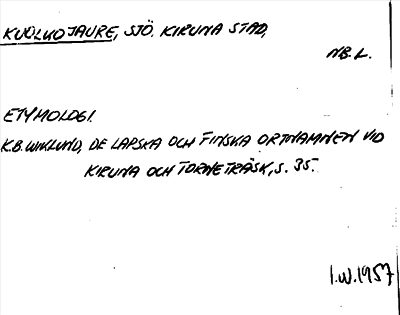 KUOLHOJAURE, SJÖ. KIRUNA STAD,
NB. L.
ETYMOLOGI.
K.B. WIKLUND, DE LAPSKA OCH FINSKA ORTNAMNEN VID
KIRUNA OCH TORNETRÄSK, S. 35.
I.W. 1957